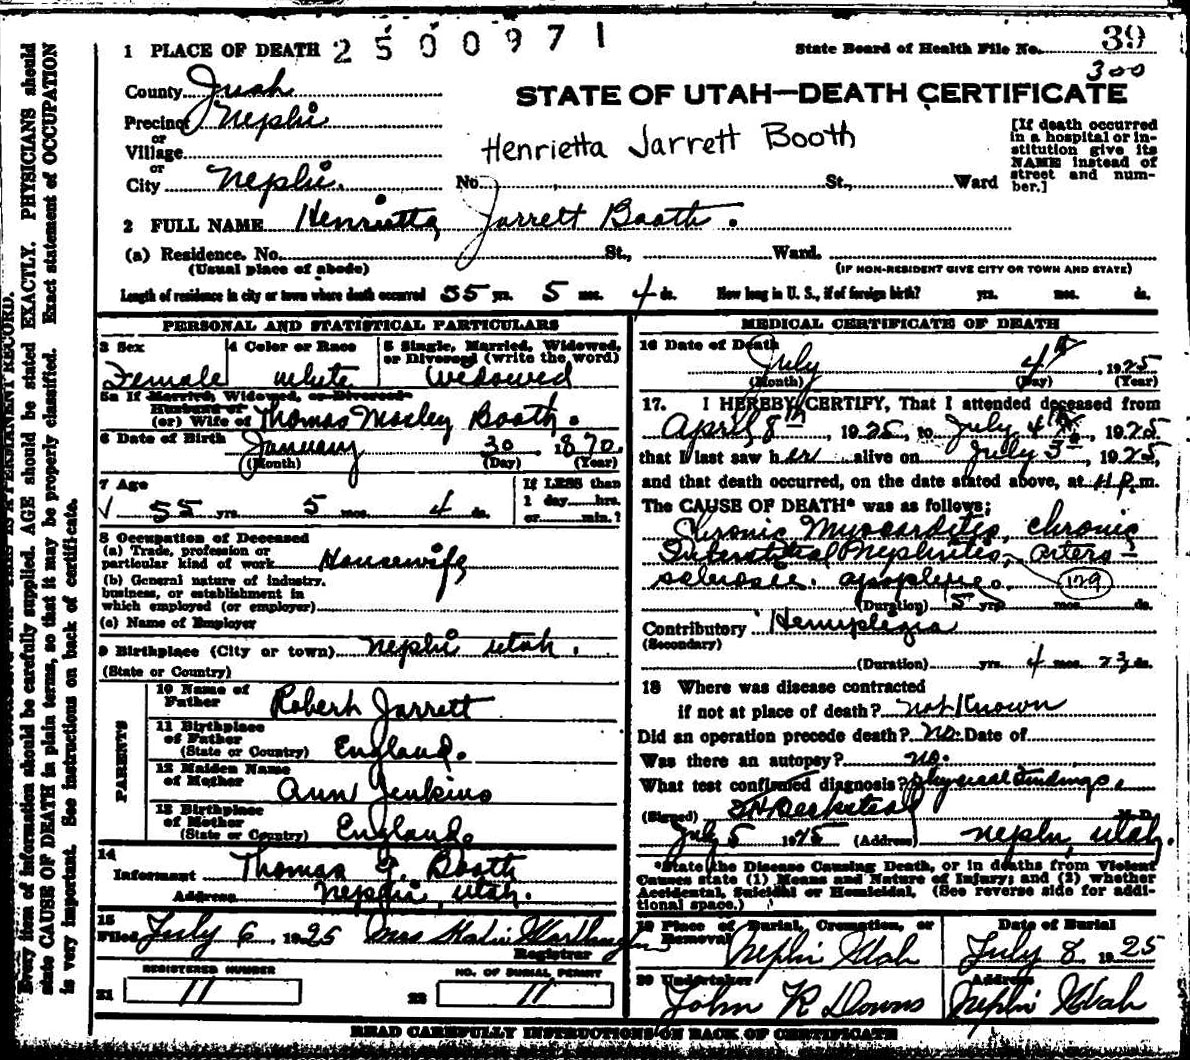 1 PLACE OF DEATH 2500971
State Board of Health File No. 39
300
County Juab
STATE OF UTAH—DEATH CERTIFICATE
Precinct Nephi
or
Village
or
City Nephi.
Henrietta Jarrett Booth
[If death occurred in a hospital or institution give its NAME instead of street and number.]
No. St., Ward
2 FULL NAME Henrietta Jarrett Booth.
(a) Residence. No. St., Ward.
(Usual place of abode)
(IF NON-RESIDENT GIVE CITY OR TOWN AND STATE)
Length of residence in city or town where death occurred 55 yrs. 5 mos. 4 ds. How long in U. S., if of foreign birth? yrs. mos. ds.
PERSONAL AND STATISTICAL PARTICULARS
3 Sex
Female
4 Color or Race
white
5 Single, Married, Widowed, or Divorced (write the word)
Widowed
5a If Married, Widowed, or Divorced
Husband of
(or) Wife of Thomas Mosley Booth.
6 Date of Birth January 30 1870.
(Month) (Day) (Year)
7 Age
55 yrs. 5 mos. 4 ds.
If LESS than
1 day hrs.
or min.?
8 Occupation of Deceased
(a) Trade, profession or
particular kind of work Housewife
(b) General nature of industry,
business, or establishment in
which employed (or employer)
(c) Name of Employer
9 Birthplace (City or town) Nephi Utah.
(State or Country)
PARENTS
10 Name of
Father Robert Jarrett
11 Birthplace
of Father
(State or Country) England.
12 Maiden Name
of Mother Ann Jenkins
13 Birthplace
of Mother
(State or Country) England.
14
Informant Thomas F. Booth
Address Nephi, Utah.
15
Filed July 6 1925 Mrs
Registrar
REGISTERED NUMBER
21 11
NO. OF BURIAL PERMIT
22 11
MEDICAL CERTIFICATE OF DEATH
16 Date of Death
July 4th, 1925
(Month) (Day) (Year)
17. I HEREBY CERTIFY, That I attended deceased from
April 8th, 1925, to July 4th, 1925
that I last saw her alive on July 3d, 1925,
and that death occurred, on the date stated above, at 4 p.m.
The CAUSE OF DEATH* was as follows;
Chronic Myocarditis, chronic
Interstitial Nephritis, arterio-
sclerosis. apoplexy. 129
(Duration) 5 yrs. mos. ds.
Contributory Hemiplegia
(Secondary)
(Duration) yrs. 4 mos. 23 ds.
18 Where was disease contracted
if not at place of death? not Known
Did an operation precede death? no. Date of
Was there an autopsy? no.
What test confirmed diagnosis? physical findings.
(Signed) M. D.
July 5 1925 (Address) Nephi, Utah.
*State the Disease Causing Death, or in deaths from Violent
Causes state (1) Means and Nature of Injury; and (2) whether
Accidental, Suicidal or Homicidal. (See reverse side for addi-
tional space.)
19 Place of Burial, Cremation, or
Removal
Nephi Utah
Date of Burial
July 8 1925
20 Undertaker
John R Downs
Address
Nephi Utah
READ CAREFULLY INSTRUCTIONS ON BACK OF CERTIFICATE
THIS IS A PERMANENT RECORD.
Every item of information should be carefully supplied. AGE should be stated EXACTLY. PHYSICIANS should
state CAUSE OF DEATH in plain terms, so that it may be properly classified. Exact statement of OCCUPATION
is very important. See instructions on back of certificate.